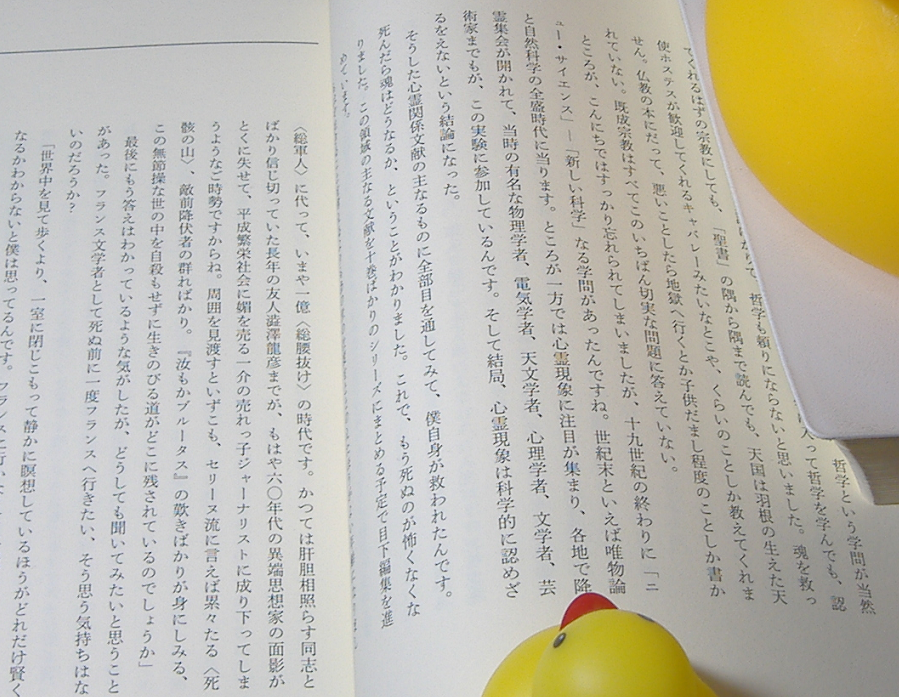 哲学という学問が当然
人って哲学を学んでも、認
哲学も頼りにならないと思いました。魂を救っ
てくれるはずの宗教にしても、『聖書』の隅から隅まで読んでも、天国は羽根の生えた天
使ホステスが歓迎してくれるキャバレーみたいなとこや、くらいのことしか教えてくれま
せん。仏教の本にだって、悪いことしたら地獄へ行くとか子供だまし程度のことしか書か
れていない。既成宗教はすべてこのいちばん切実な問題に答えていない。
ところが、こんにちではすっかり忘れられてしまいましたが、十九世紀の終わりに「ニ
ュー・サイエンス」―「新しい科学」なる学問があったんですね。世紀末といえば唯物論
と自然科学の全盛時代に当ります。ところが一方では心霊現象に注目が集まり、各地で降
霊集会が開かれて、当時の有名な物理学者、電気学者、天文学者、心理学者、文学者、芸
術家までもが、この実験に参加しているんです。そして結局、心霊現象は科学的に認めざ
るをえないという結論になった。
そうした心霊関係文献の主なるものに全部目を通してみて、僕自身が救われたんです。
死んだら魂はどうなるか、ということがわかりました。これで、もう死ぬのが怖くなくな
りました。この領域の主なる文献を十巻ばかりのシリーズにまとめる予定で目下編集を進
めています。
〈総軍人〉に代って、いまや一億〈総腰抜け〉の時代です。かつては肝胆相照らす同志と
ばかり信じ切っていた長年の友人澁澤龍彦までが、もはや六〇年代の異端思想家の面影が
とくに失せて、平成繁栄社会に媚を売る一介の売れっ子ジャーナリストに成り下ってしま
うようなご時勢ですからね。周囲を見渡すといずこも、セリーヌ流に言えば累々たる〈死
骸の山〉、敵前降伏者の群ればかり。『汝もかブルータス』の歎きばかりが身にしみる、
この無節操な世の中を自殺もせずに生きのびる道がどこに残されているのでしょうか」
最後にもう答えはわかっているような気がしたが、どうしても聞いてみたいと思うこと
があった。フランス文学者として死ぬ前に一度フランスへ行きたい、そう思う気持ちはな
いのだろうか?
「世界中を見て歩くより、一室に閉じこもって静かに瞑想しているほうがどれだけ賢く
なるかわからないと僕は思ってるんです。フランスに行